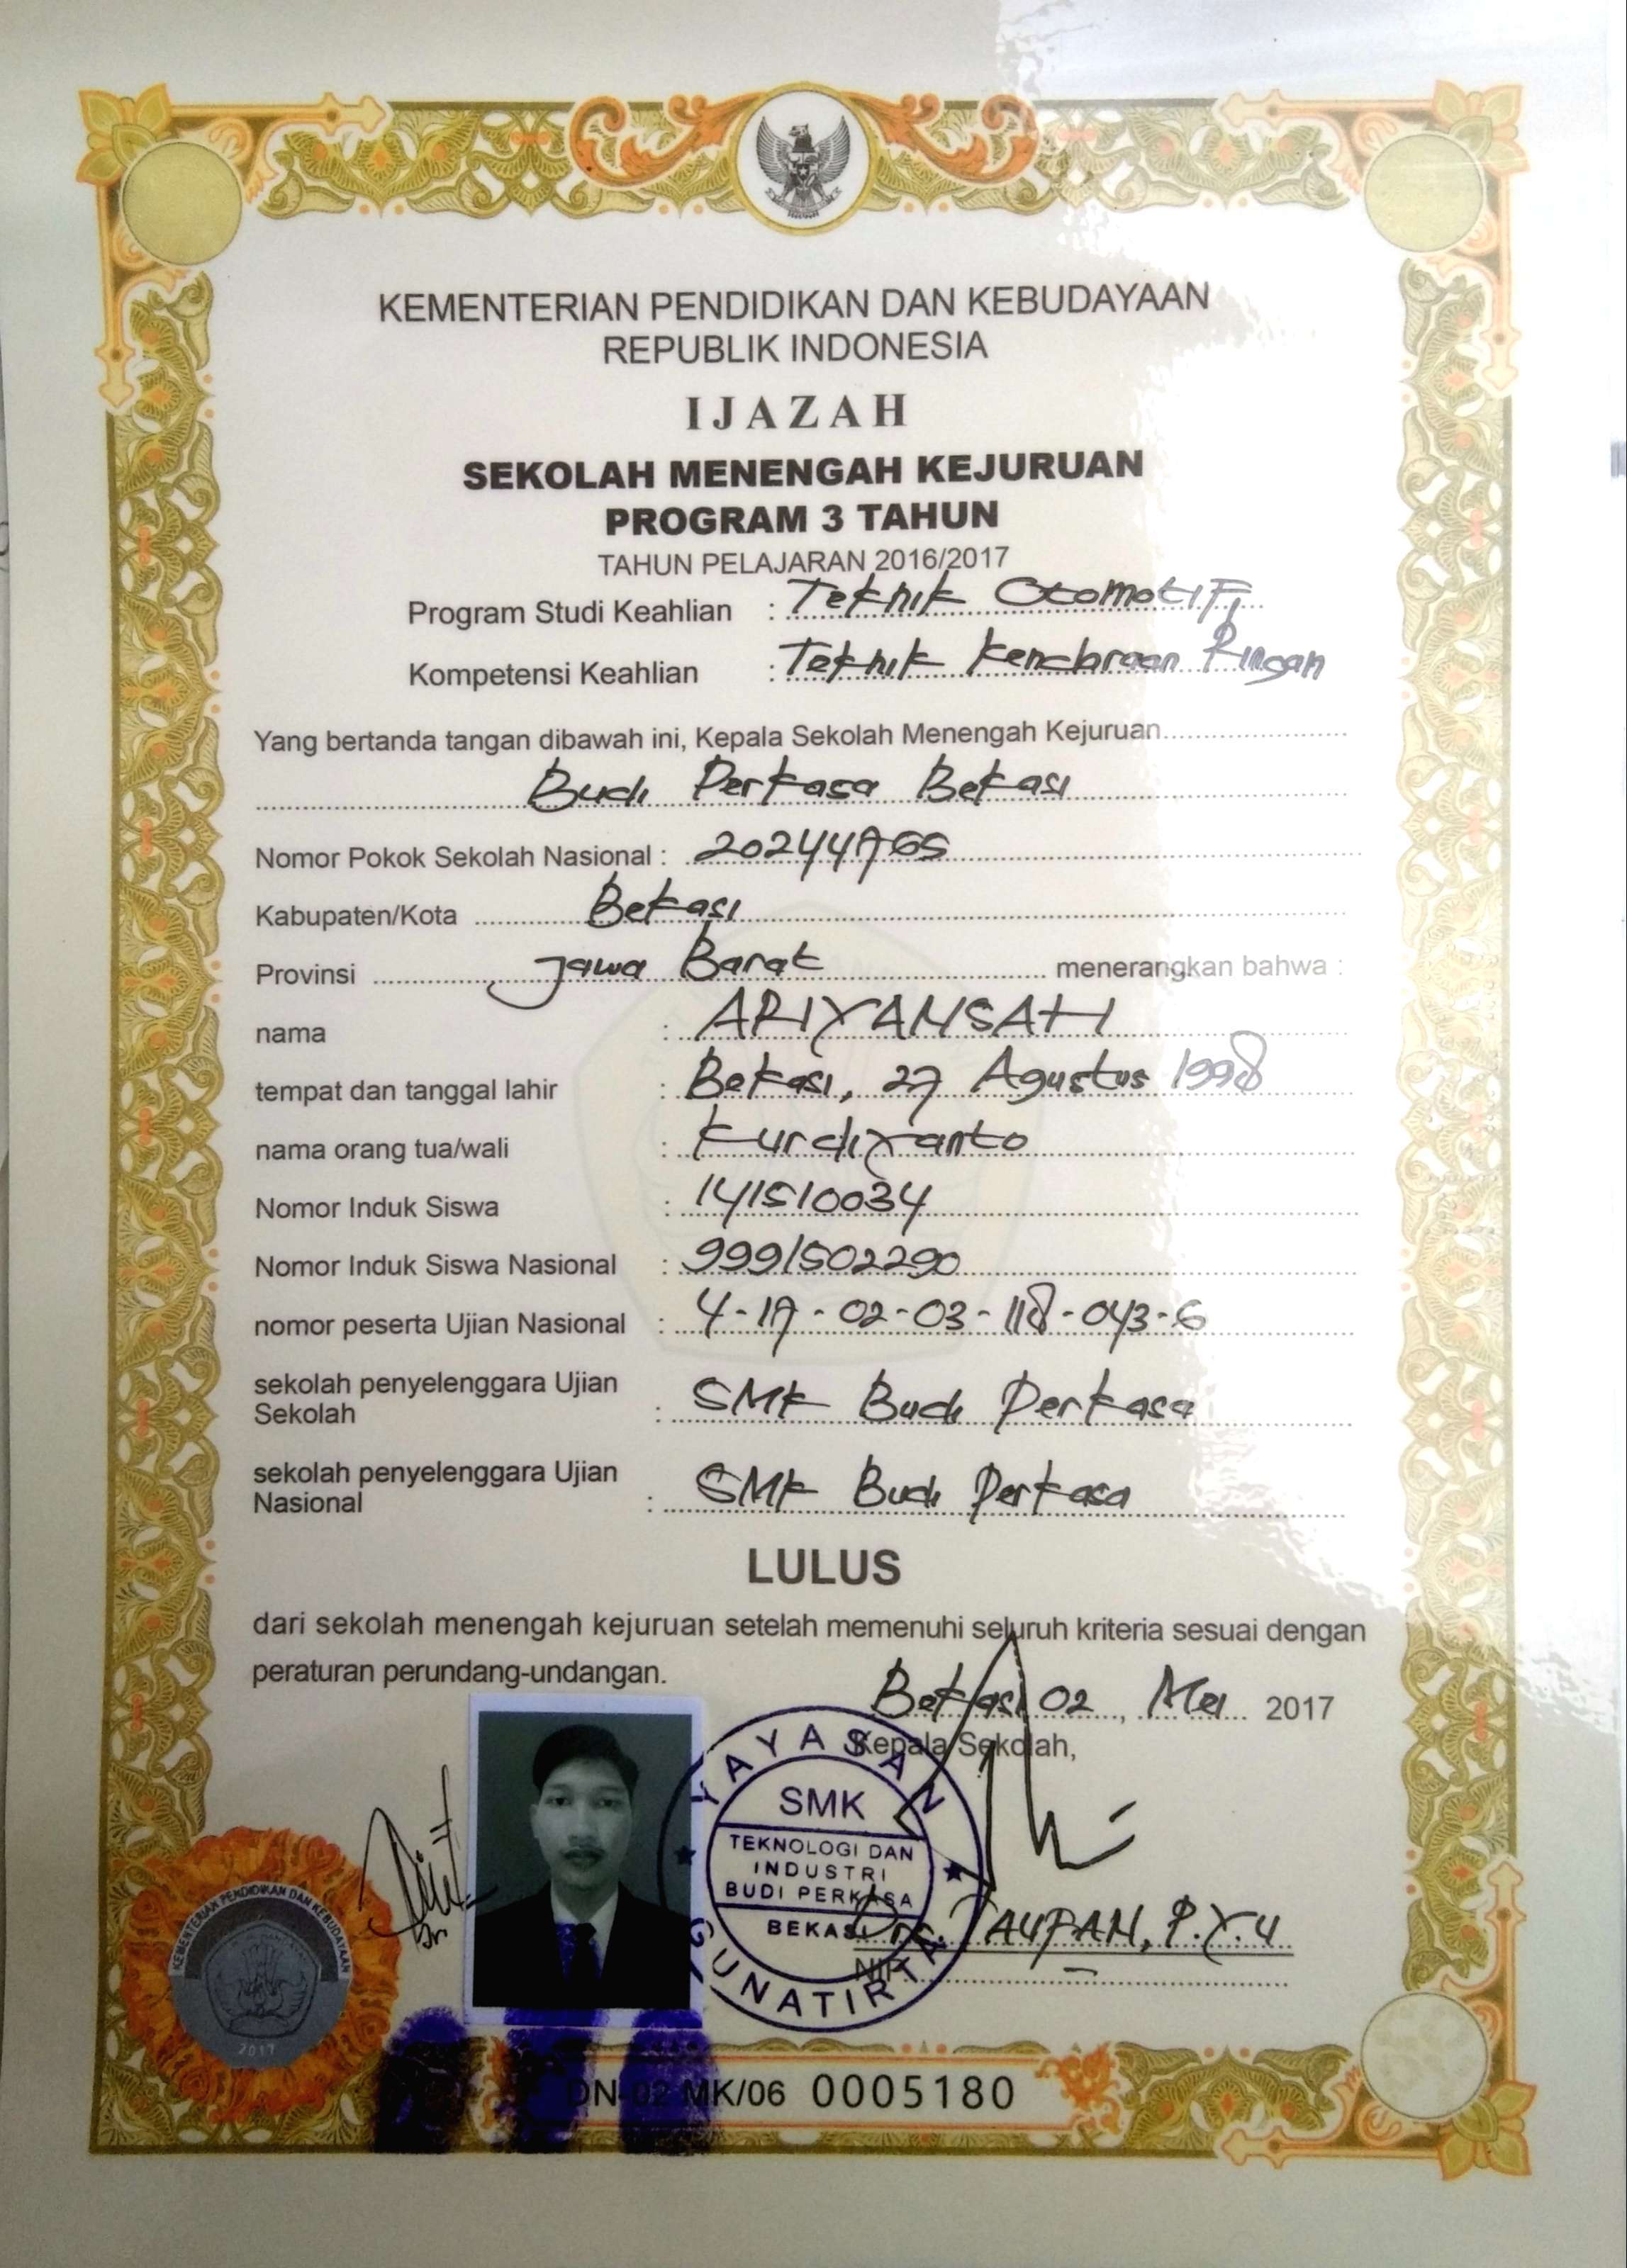 KEMENTERIAN PENDIDIKAN DAN KEBUDAYAAN
REPUBLIK INDONESIA
IJAZAH
SEKOLAH MENENGAH KEJURUAN
PROGRAM 3 TAHUN
TAHUN PELAJARAN 2016/2017
Program Studi Keahlian : Teknik Otomotif
Kompetensi Keahlian : Teknik Kendaraan Ringan
Yang bertanda tangan dibawah ini, Kepala Sekolah Menengah Kejuruan
Budi Perkasa Bekasi
Nomor Pokok Sekolah Nasional : 20244765
Kabupaten/Kota Bekasi
Provinsi Jawa Barat menerangkan bahwa :
nama : ARIYANSAH
tempat dan tanggal lahir : Bekasi, 27 Agustus 1998
nama orang tua/wali : Kurdiyanto
Nomor Induk Siswa : 141510034
Nomor Induk Siswa Nasional : 9991502290
nomor peserta Ujian Nasional : 4-17-02-03-118-043-6
sekolah penyelenggara Ujian
Sekolah : SMK Budi Perkasa
sekolah penyelenggara Ujian
Nasional : SMK Budi Perkasa
LULUS
dari sekolah menengah kejuruan setelah memenuhi seluruh kriteria sesuai dengan
peraturan perundang-undangan.
Bekasi 02, Mei 2017
Kepala Sekolah,
YAYASAN
SMK
TEKNOLOGI DAN
INDUSTRI
BUDI PERKASA
BEKASI
GUNATIRTA
Drs. TAUPAN, P.Y.U
NIP. -
KEMENTERIAN PENDIDIKAN DAN KEBUDAYAAN
2017
DN-02 MK/06 0005180